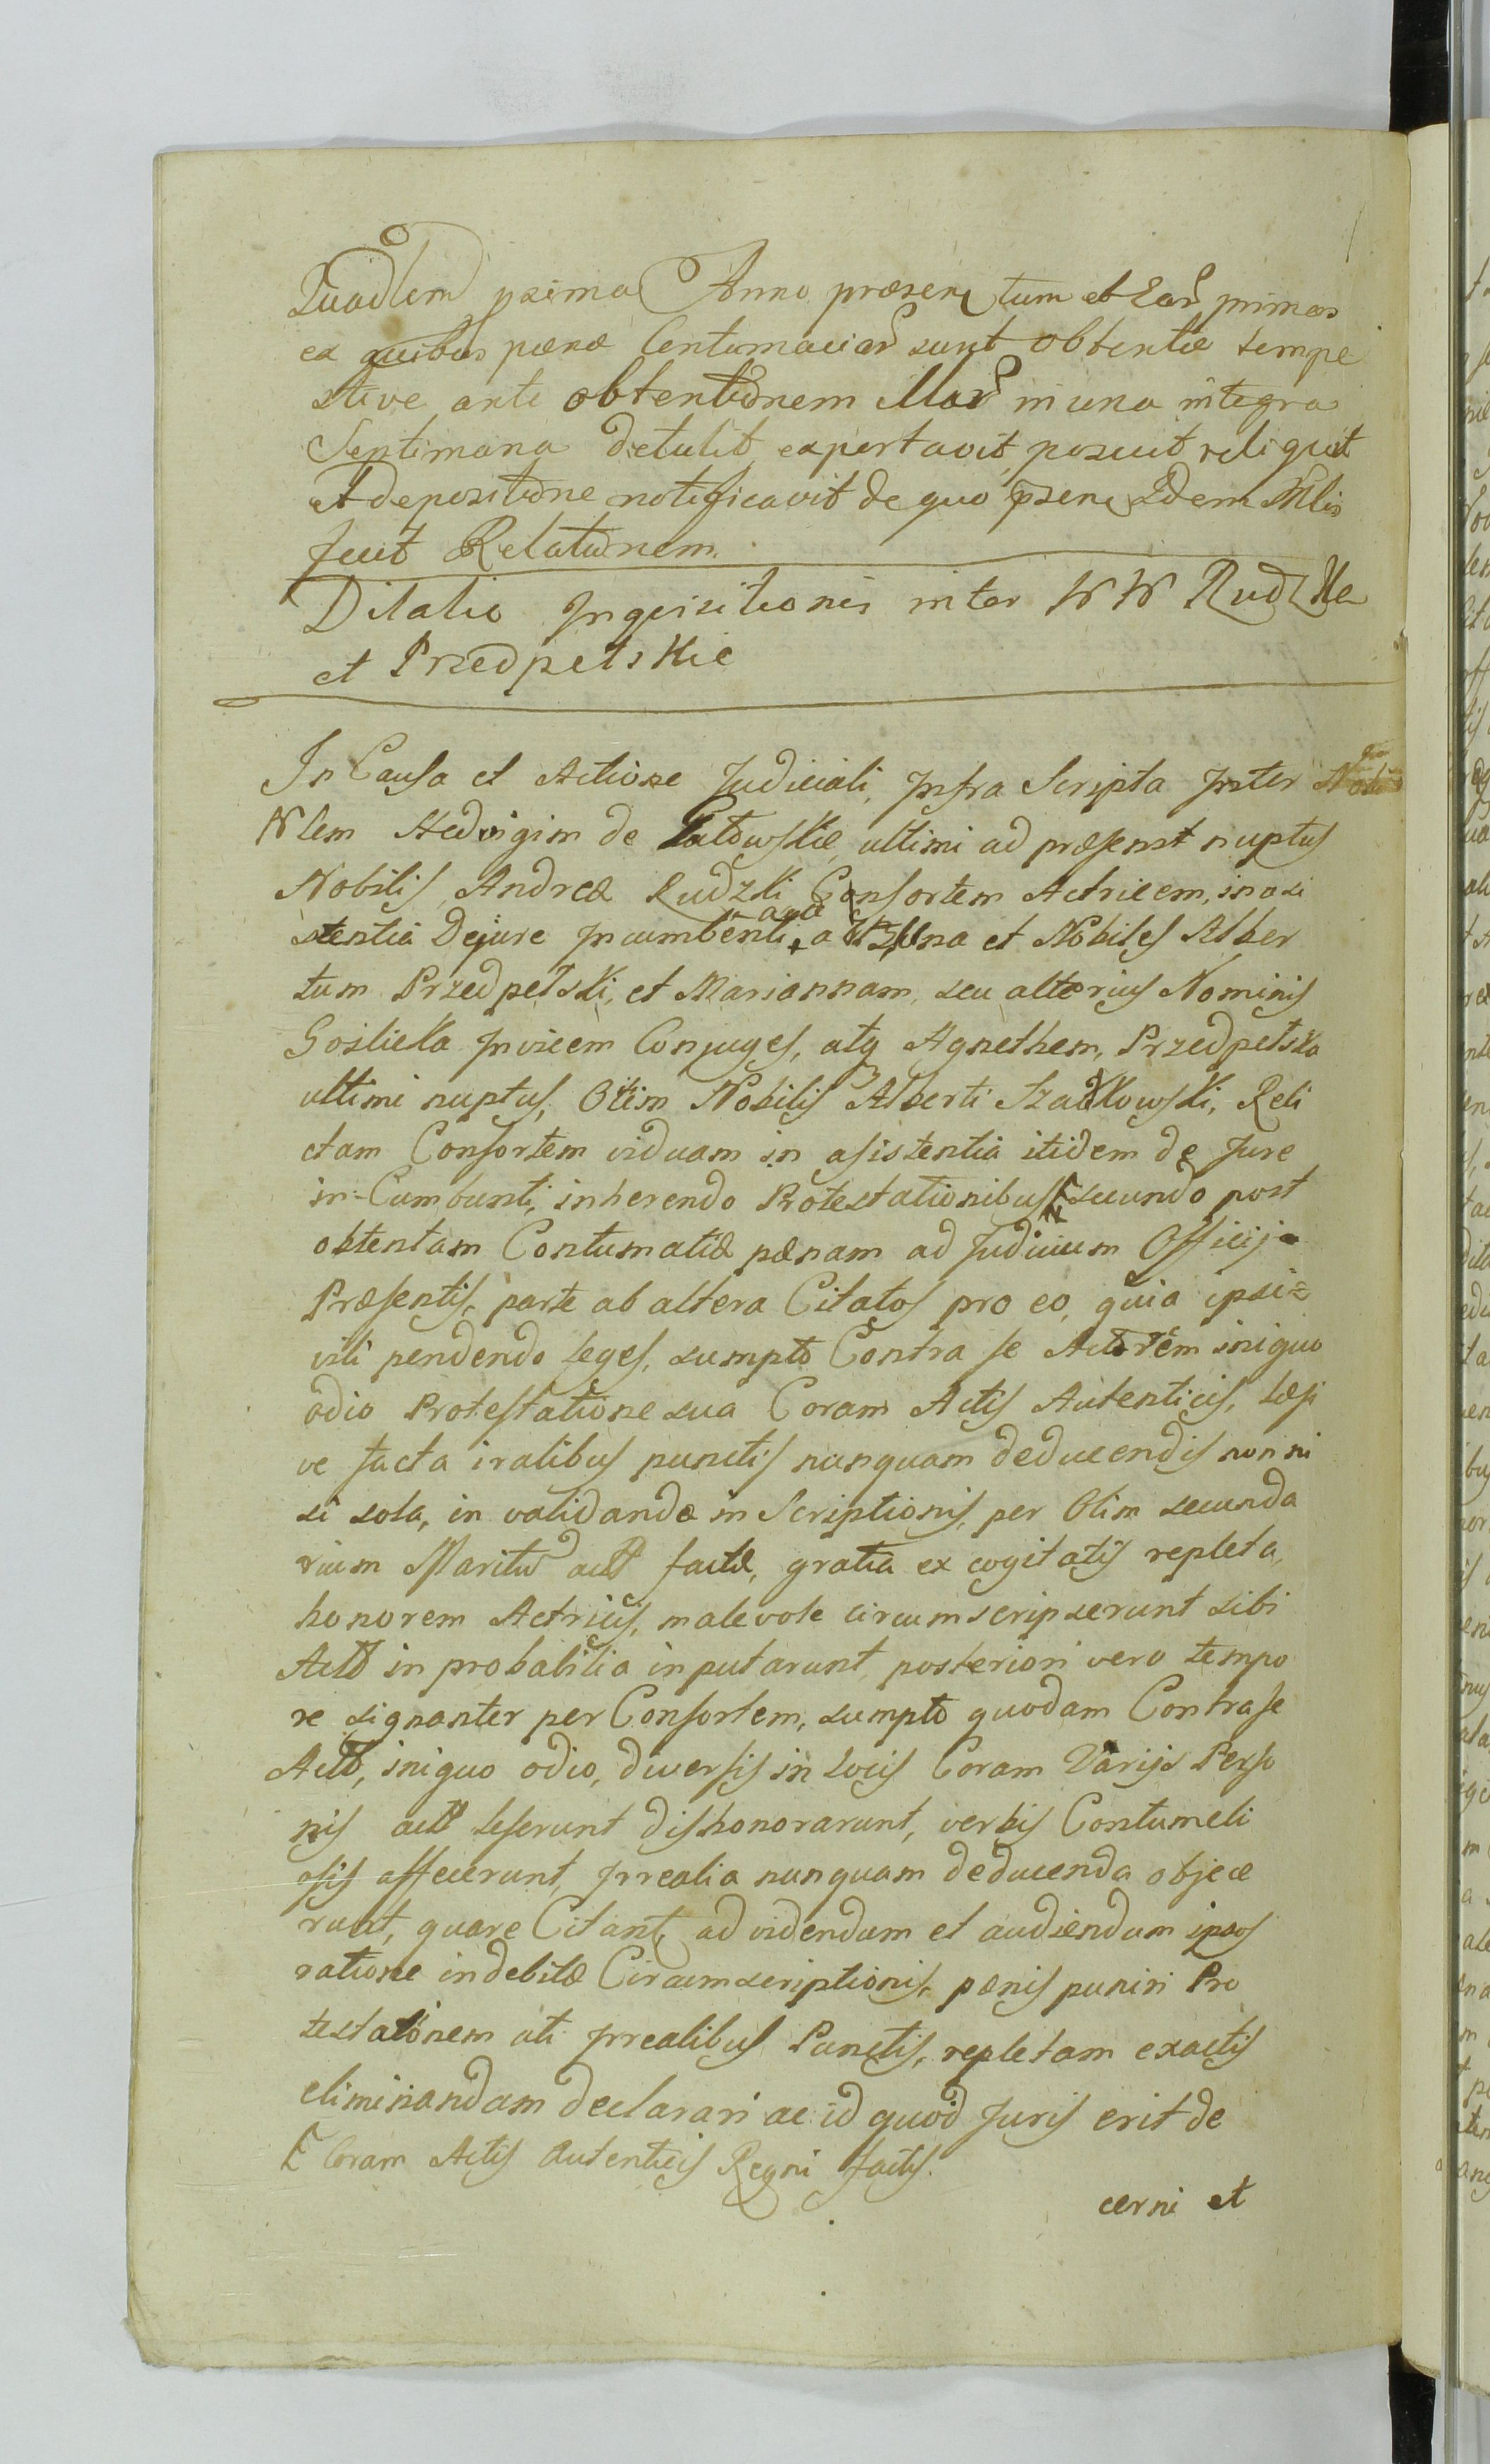 prima Anno praesen tum et Ear primas
ex quibus paenae Contumaciar sunt obtentae tempe
stive ante obtentionem Illar in una integra
Septimana detulit exportavit posuit reliquit
et depositione notificavit de quo psen Idem Mlis
fecit Relationem.
Dilatio Inquisitionis inter NN Rudzka
et Przedpełskie
In Causa et Actione Judiciali, Infra Scripta Inter
Nlem Hedvigim de ultimi ad praesenst nuptus
Nobilis, Andreae Rudzki Consortem Actricem, in asi
stentia Dejure Incumbenti, a et Nobiles Alber
tum Przedpełski, et Mariannam, seu alterius Nominis
Goslicka Invicem Conjuges, atq Agnethem, Przedpełska
ultimi nuptus, Olim Nobilis Alberti Szadkowski, Reli
ctam Consortem viduam in asistentia itidem de Jure
in-Cumbenti, inherendo Protestationibus secundo post
obtentam Contumatiae paenam ad Judicium Officij
Praesentis, parte ab altera Citatos pro eo, quia ipsi=
vili pendendo leges, sumpto Contra se Actorem iniquo
odio Protestatione sua Coram Actis Autenticis, laesi
ve facta iratibus punctis nunquam deducendis non ni
si sola, in validandae in Scriptionis, per Olim secunda
rium Maritu act factae, gratia ex cogitatis repleta,
honorem Actricis, malevole circumscripserunt sibi
Act in probabilia inputarunt posteriori vero tempo
re signanter per Consortem, sumpto quodam Contra se
Act, iniquo odio, diversis in locis Coram Varijs Perso
nis act leserunt dishonorarunt, verbis Contumeli
osis affecerunt, Irrealia nunquam deducenda objece
runt, quare Citant, ad videndum et audiendum ipsos
ratione indebitae Circumscriptionis, paenis puniri Pro
testationem uti Irrealibus Punctis, repletam exactis
eliminandam declarari ac id quod Juris erit de
Coram Actis Autenticis Regni factis.
cerni et